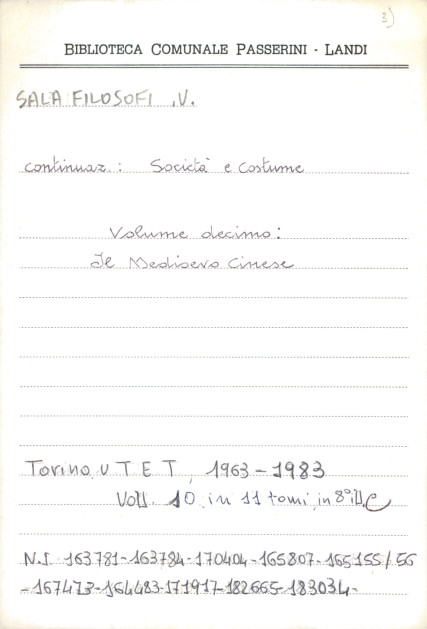 3)
BIBLIOTECA COMUNALE PASSERINI - LANDI
SALA FILOSOFI .V.
continuaz.: Società e Costume
Volume decimo:
Il Medioevo Cinese
Torino, U T E T, 1963-1983
Voll. 10 in 11 tomi, in 8° ill.
N.I. 163781-163784-170404-165807-165155/56
-167473-164483-171917-182665-183034-